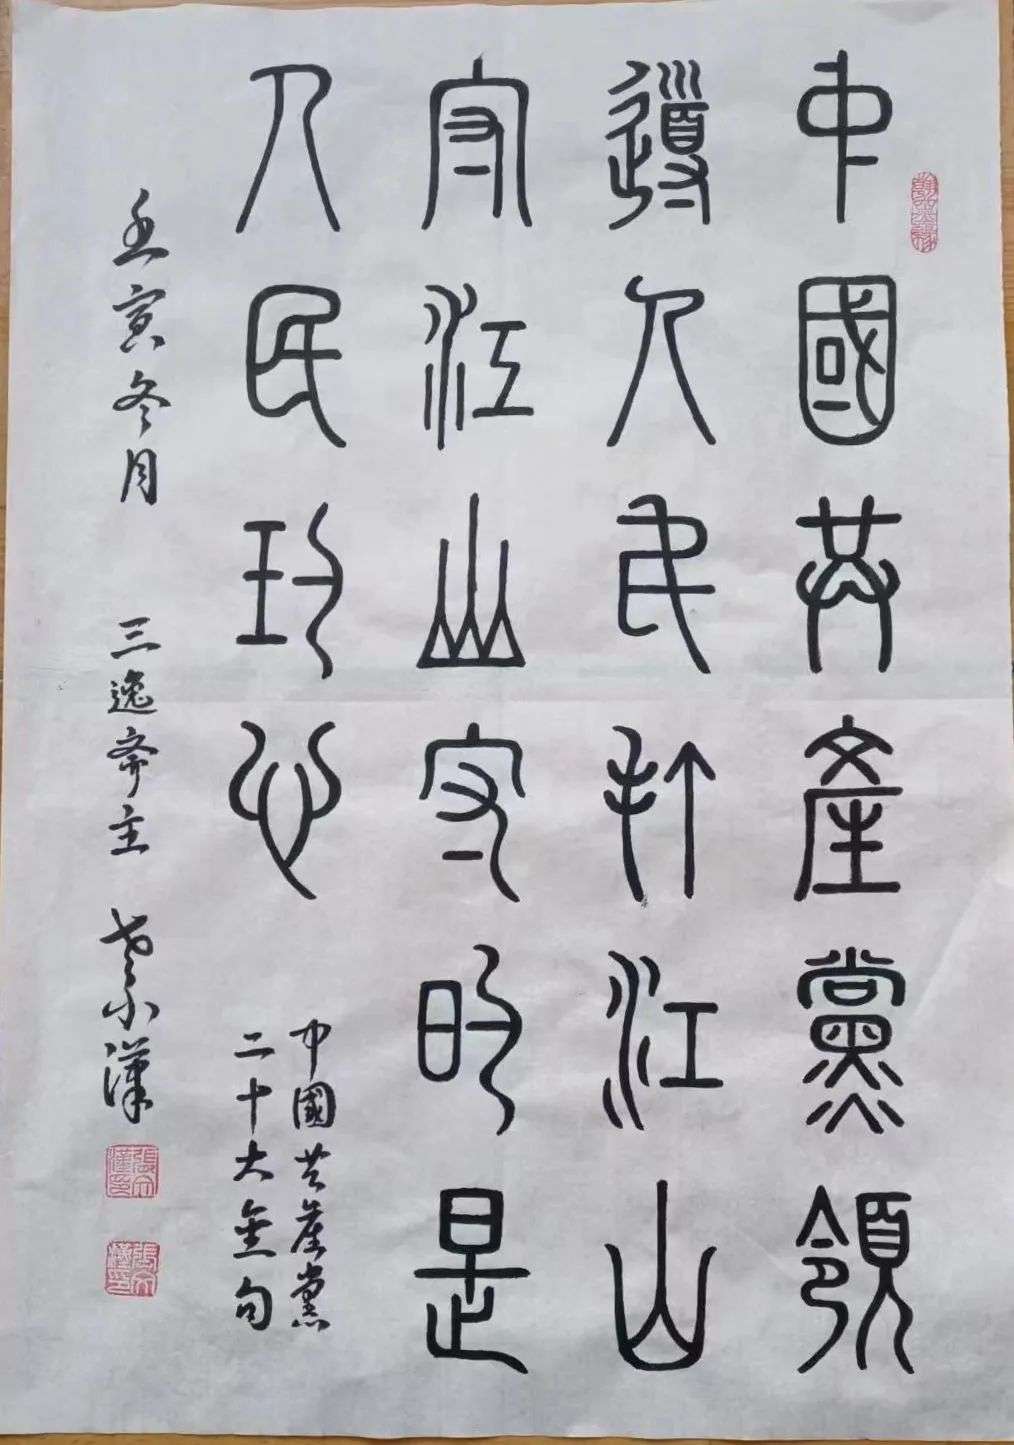 中國共產黨領
導人民打江山
守江山守的是
人民的心
中國共產黨
二十大金句
壬寅冬月 三逸齋主 漢